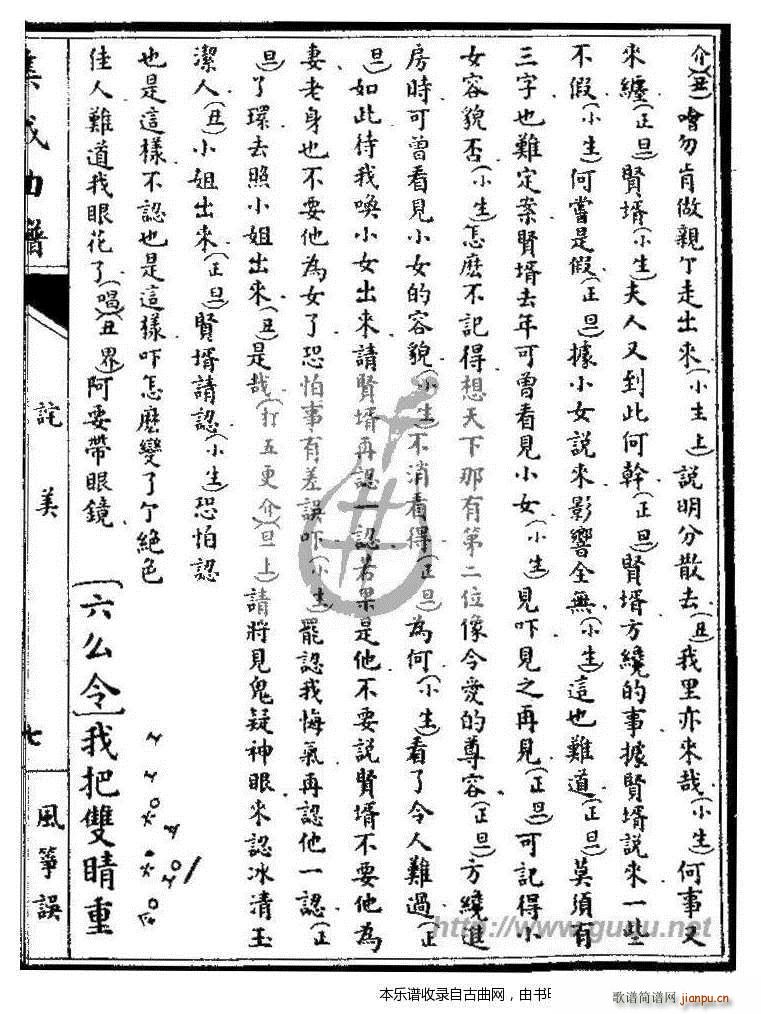 介)(丑)噲勿肯做親亇走出來(小生上)說明分散去(丑)我里亦來哉(小生)何事又
來纏(正旦)賢壻(小生)夫人又到此何幹(正旦)賢壻方纔的事據賢壻說來一些
不假(小生)何嘗是假(正旦)據小女說來影響全無(小生)這也難道(正旦)莫須有
三字也難定案賢壻去年可曾看見小女(小生)見吓見之再見(正旦)可記得小
女容貌否(小生)怎麽不記得想天下那有第二位像令愛的尊容(正旦)方纔進
房時可曾看見小女的容貌(小生)不消看得(正旦)為何(小生)看了令人難過(正
旦)如此待我喚小女出來請賢壻再認一認若果是他不要說賢壻不要他為
妻老身也不要他為女了恐怕事有差誤吓(小生)罷認我悔氣再認他一認(正
旦)了環去照小姐出來(丑)是哉(打五更介)(旦上)請將見鬼疑神眼來認冰清玉
潔人(丑)小姐出來(正旦)賢壻請認(小生)恐怕認
也是這樣不認也是這樣吓怎麽變了亇絕色
佳人難道我眼花了(唱)(丑界)阿要帶眼鏡
[六么令]我把雙睛重
集成曲譜
詫美
七
風箏誤
http://www.guqu.net
本乐谱收录自古曲网，由书
歌谱简谱网 jianpu.cn